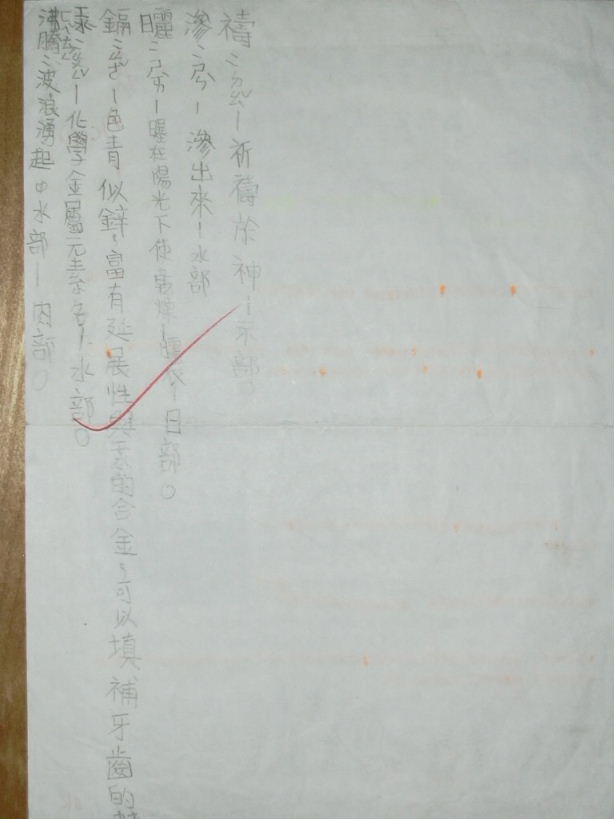 禱:ㄉㄠˇ-祈禱於神-示部。
滲:ㄕㄣˋ-滲出來-水部
曬:ㄕㄞˋ-曬在陽光下使乾燥-曬衣-日部。
鎘:ㄍㄜˊ-色青似鋅,富有延展性與汞的合金,可以填補牙齒的
汞:ㄍㄨㄥˇ-化學金屬元素名-水部。
沸騰:波浪湧起 水部-肉部。